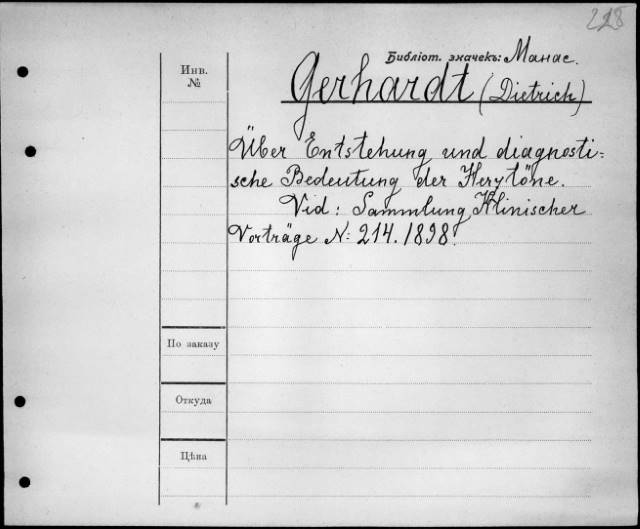 228
Библіот. значекъ: Манас.
Инв.
№
Gerhardt (Dietrich)
Über Entstehung und diagnosti=
sche Bedeutung der Herztöne.
Vid: Sammlung Klinischer
Vorträge N: 214. 1898.
По заказу
Откуда
Цѣна